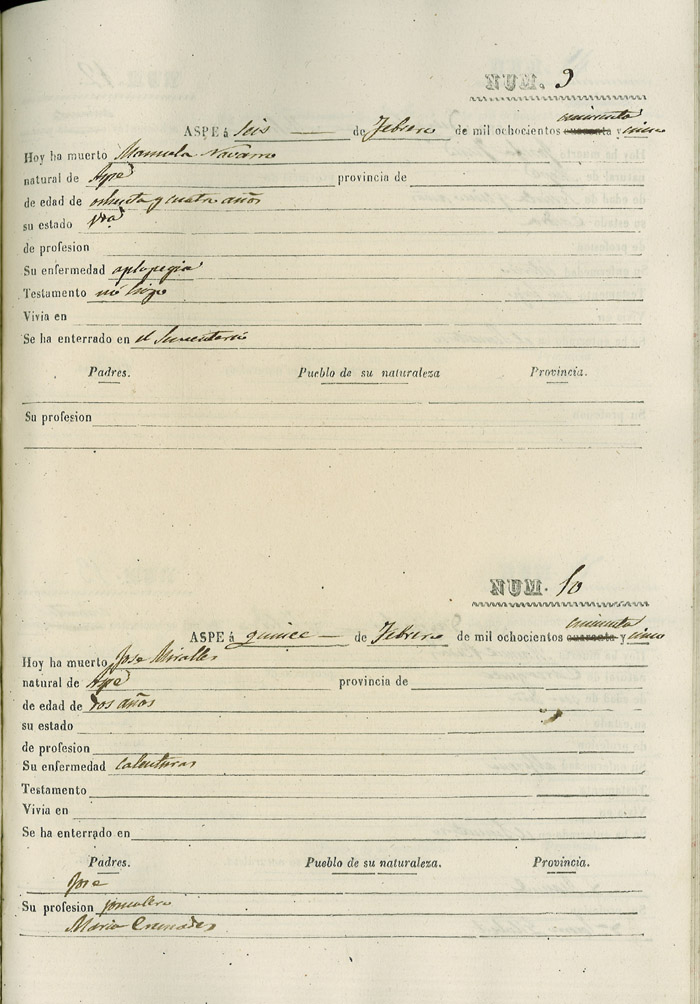 NUM. 9
cincuenta
ASPE á seis de Febrero de mil ochocientos cuarenta y cinco
Hoy ha muerto Manuela Navarro
natural de Aspe provincia de
de edad de ochenta y cuatro años
su estado Vda
de profesion
Su enfermedad aplopegia
Testamento no hizo
Vivia en
Se ha enterrado en el
Padres. Pueblo de su naturaleza Provincia.
Su profesion
NUM. 10
cincuenta
ASPE á quince de Febrero de mil ochocientos cuarenta y cinco
Hoy ha muerto Jose Miralles
natural de Aspe provincia de
de edad de dos años
su estado
de profesion
Su enfermedad calenturas
Testamento
Vivia en
Se ha enterrado en
Padres. Pueblo de su naturaleza. Provincia.
Jose
Su profesion jornalero
Maria Cremades